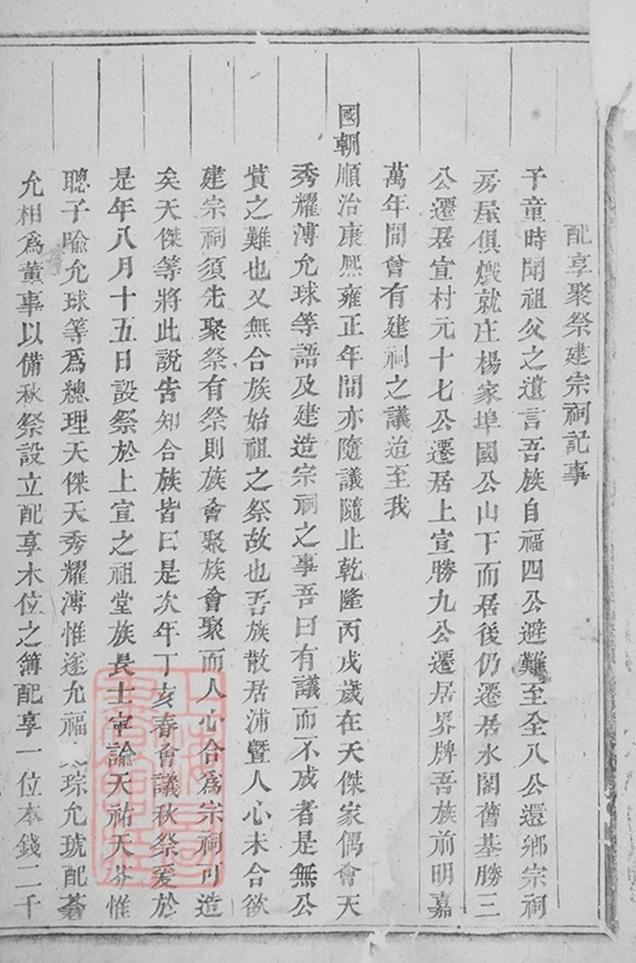 配享聚祭建宗祠記事
予童時聞祖父之遺言吾族自福四公避難至全八公還鄉宗祠
房屋俱燬就庄楊家埠國公山下而居後仍遷居水閣舊基勝三
公遷居宣村元十七公遷居上宣勝九公遷居界牌吾族前明嘉
萬年間曾有建祠之議迨至我
國朝順治康熙雍正年間亦隨議隨止乾隆丙戌歲在天傑家偶會天
秀耀溥允球等語及建造宗祠之事吾曰有議而不成者是無公
貲之難也又無合族始祖之祭故也吾族散居浦暨人心未合欲
建宗祠須先聚祭有祭則族會聚族會聚而人心合為宗祠可造
矣天傑等將此說告知合族皆曰是次年丁亥春會議秋祭爰於
是年八月十五日設祭於上宣之祖堂族長士寧諭天祐天芬惟
聰子喻允球等為總理天傑天秀耀溥惟遂允福琮允琥配蒼
允相為董事以備秋祭設立配享木位之簿配享一位本錢二千